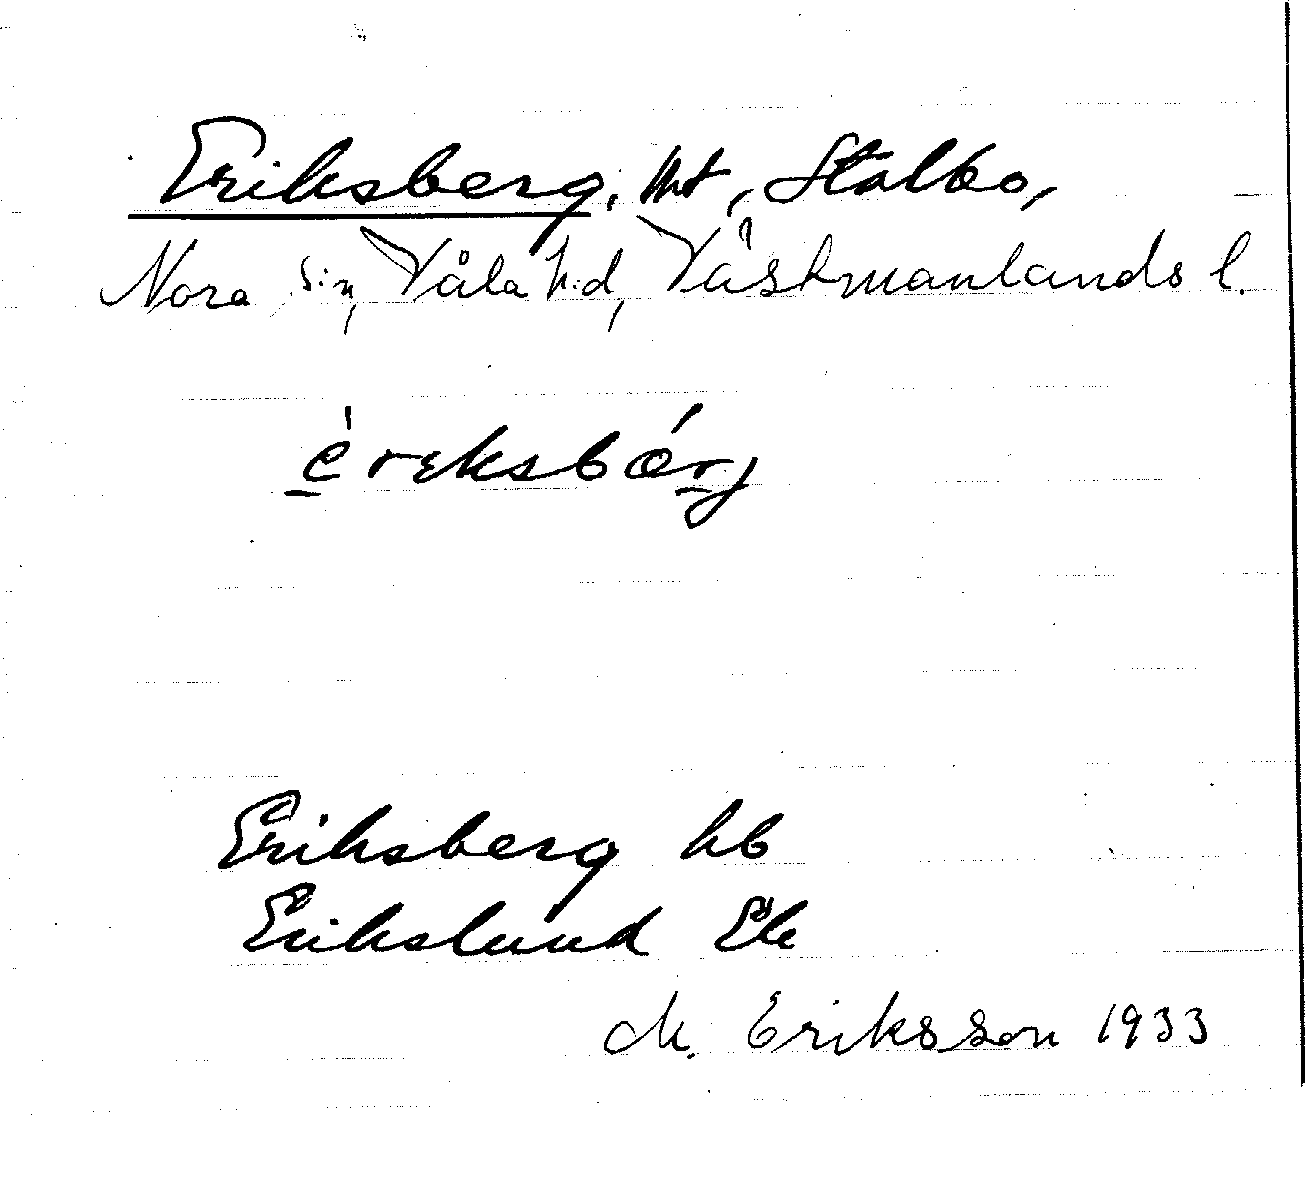 Eriksberg, hmt, Stalbo,
Nora s:n, Våla h:d, Västmanlands l.
èreksbórj
Eriksberg hb
Erikslund Ek
M. Eriksson 1933